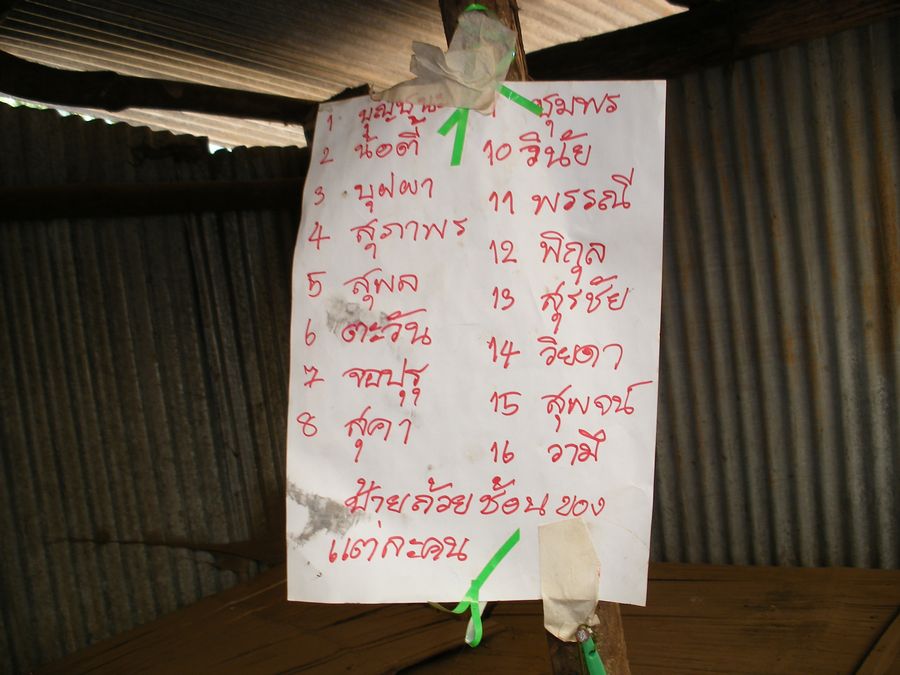 1 บุญชู
2 น้อตี้
3 บุผผา
4 สุภาพร
5 สุพล
6 ตะวัน
7 จอปุรุ
8 สุคา
ชุมพร
10 วินัย
11 พรรณี
12 พิกุล
13 สุรชัย
14 วิยดา
15 สุพจน์
16 วามี
ป้ายถ้วยช้อนของ
แต่ละคน